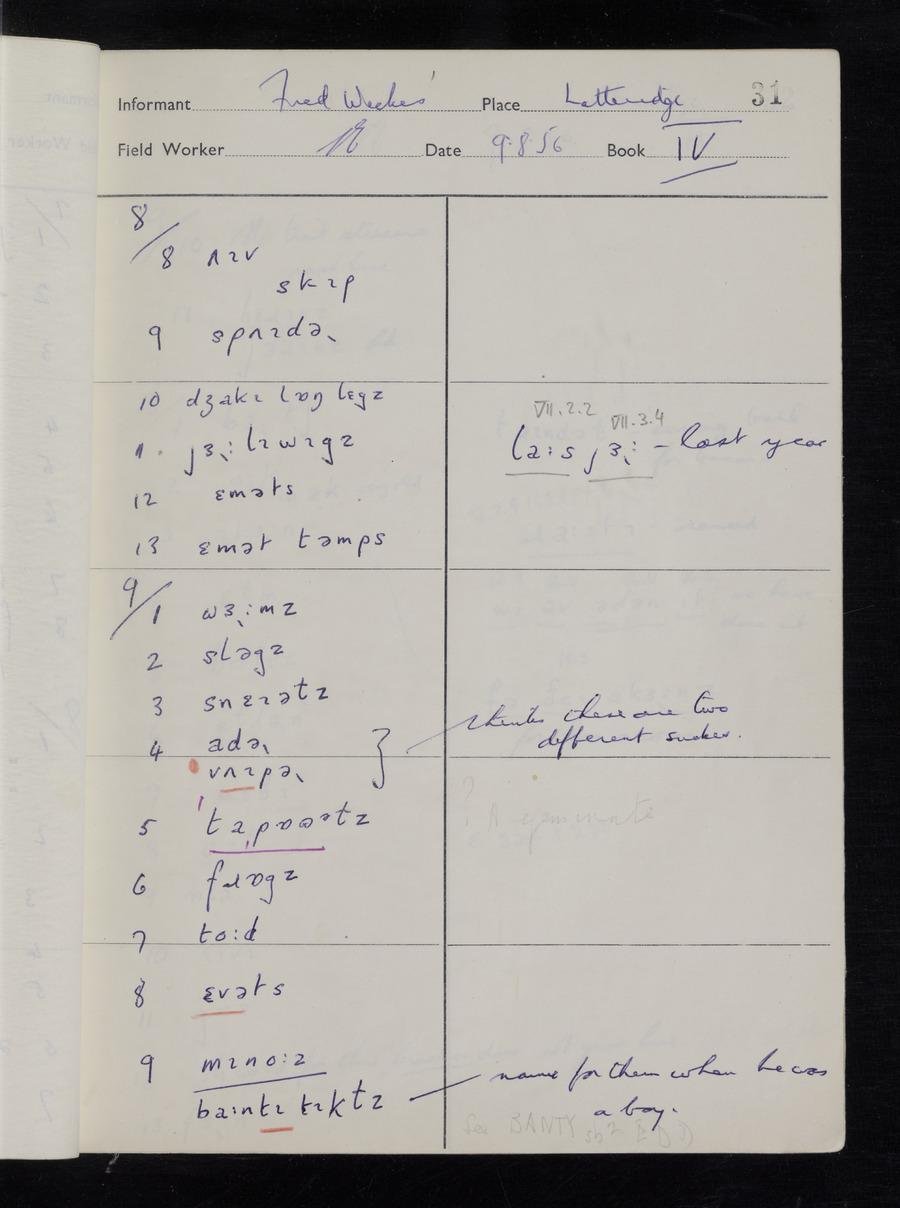 Informant Fred Weekes Place Latteridge 31
Field Worker Date 9.8.56 Book IV
8/8 nɪv
skɪp
9 spʌɪdə˞
10 dʒakɪ lɒŋ lɛgz
11 jɜ˞ː lɪwɪgz
VII.2.2 VII.3.4
laːs jɜ˞ː - last year
12 ɛməts
13 ɛmət təmps
9/1 wɜ˞ːmz
2 sləgz
3 snɛɪətz
4 adə˞
vʌɪpə˞
thinks these are two
different snakes.
5
6 fɹɒgz
7 toːd
8 ɛvəts
9 mɪnoːz
baːntɪ tɪktz
name for them when he was
a boy.
See BANTY sb² EDD